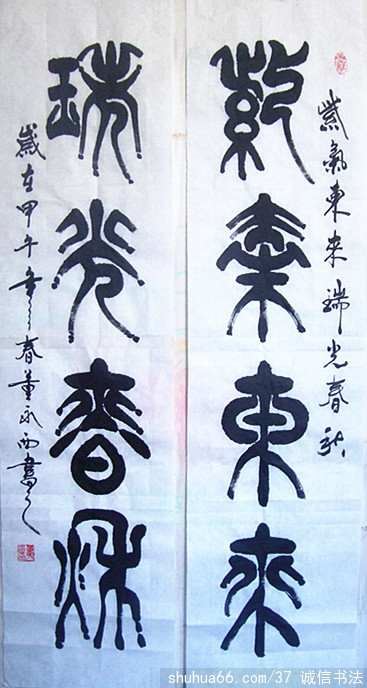 紫气東来瑞光春秋
紫氣東來
瑞光春秋
歲在甲午年之春董永西書之
shuhua66.com/37 诚信书法